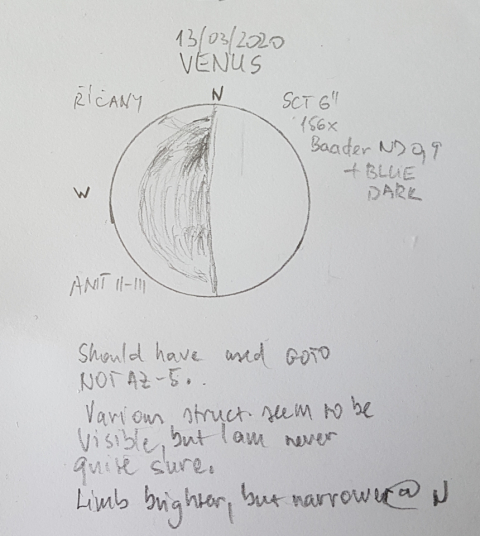 13/03/2020
VENUS
ŘÍČANY
N
SCT 6"
156x
Baader ND 0,9
+ BLUE
DARK
W
ANT II-III
Should have used GOTO
NOT AZ-5..
Various struct. seem to be
visible, but I am never
quite sure.
Limb brighter, but narrower @ N